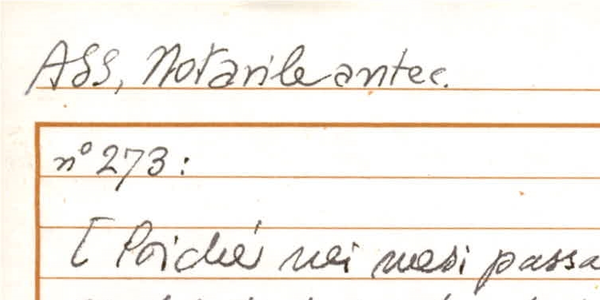 ASS, Notarile antec.
n° 273:
[ Poiché nei mesi passa